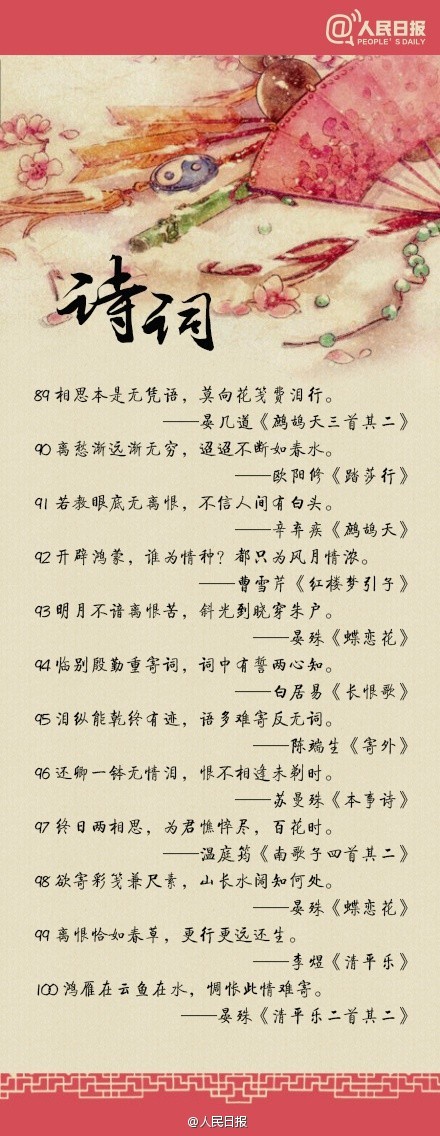 @人民日报
PEOPLE'S DAILY
诗词
89 相思本是无凭语，莫向花笺费泪行。
——晏几道《鹧鸪天三首其二》
90 离愁渐远渐无穷，迢迢不断如春水。
——欧阳修《踏莎行》
91 若教眼底无离恨，不信人间有白头。
——辛弃疾《鹧鸪天》
92 开辟鸿蒙，谁为情种？都只为风月情浓。
——曹雪芹《红楼梦引子》
93 明月不谙离恨苦，斜光到晓穿朱户。
——晏殊《蝶恋花》
94 临别殷勤重寄词，词中有誓两心知。
——白居易《长恨歌》
95 泪纵能乾终有迹，语多难寄反无词。
——陈端生《寄外》
96 还卿一钵无情泪，恨不相逢未剃时。
——苏曼殊《本事诗》
97 终日两相思，为君憔悴尽，百花时。
——温庭筠《南歌子四首其二》
98 欲寄彩笺兼尺素，山长水阔知何处。
——晏殊《蝶恋花》
99 离恨恰如春草，更行更远还生。
——李煜《清平乐》
100 鸿雁在云鱼在水，惆怅此情难寄。
——晏殊《清平乐二首其二》
@人民日报